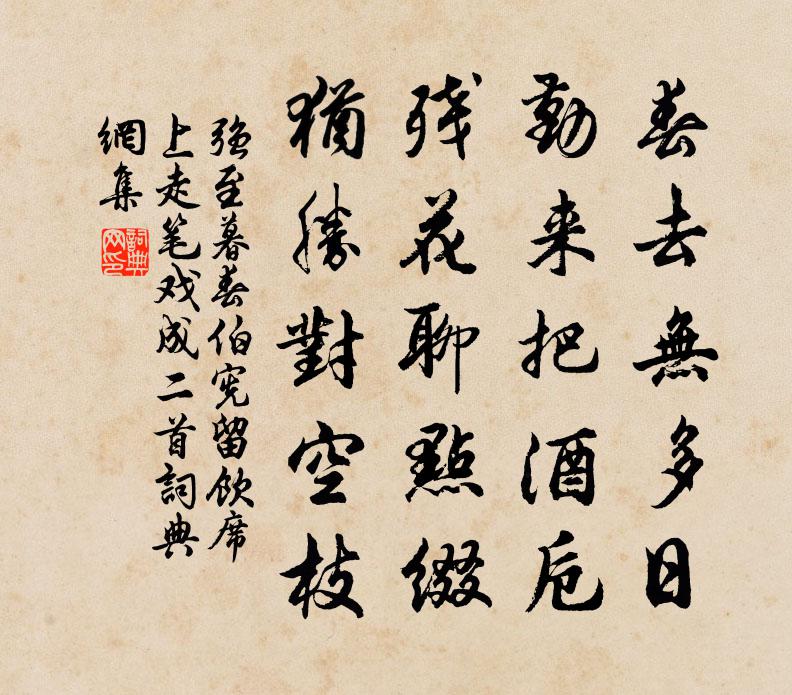 春去無多日
勤来把酒卮
残花聊點綴
猶勝對空枝
强至暮春伯宪留飲席
上走笔戏成二首詞典
網集
詞典
网印